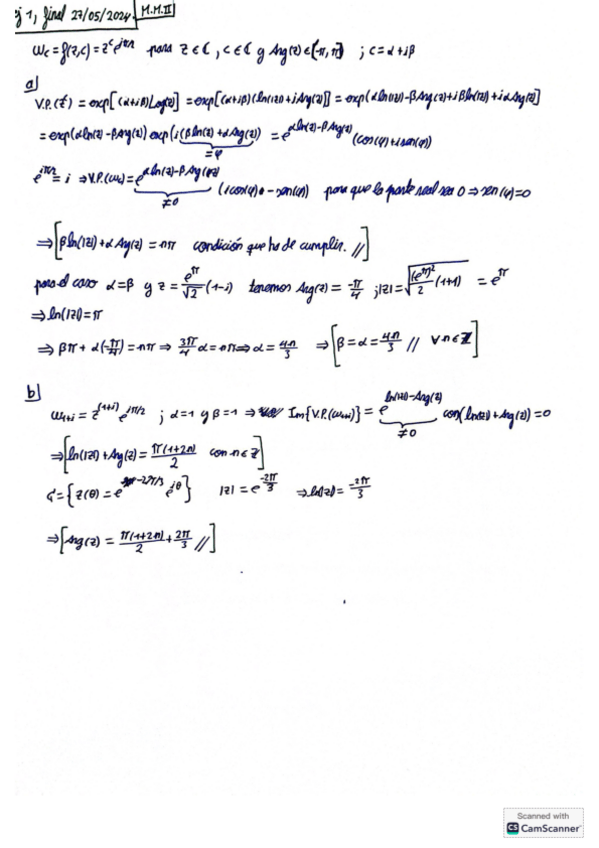 ej 1, final 27/05/2024. M.M.II
ω_c = f(z,c) = z^c e^{iπ/2} para z ∈ ℂ, c ∈ ℂ y Arg(z) ∈ [-π, π] ; c = α+iβ
a)
V.P.(z^c) = exp[(α+iβ)Log(z)] = exp[(α+iβ)(ln|z|+iArg(z))] = exp(αln|z|-βArg(z)+iβln|z|+iαArg(z)]
= exp(αln|z|-βArg(z)) exp(i(βln|z|+αArg(z))) = e^{αln|z|-βArg(z)} (cos(φ)+isen(φ))
= φ
e^{iπ/2} = i ⇒ V.P.(ω_c) = e^{αln|z|-βArg(z)} (icos(φ) - sen(φ)) para que la parte real sea 0 ⇒ sen(φ)=0
≠0
⇒ [βln(|z|)+αArg(z) = nπ condición que ha de cumplir. //]
para el caso α=β y z = e^π/√2 (1-i) tenemos Arg(z) = -π/4 ; |z| = √((e^π)²/2 (1+1)) = e^π
⇒ ln(|z|) = π
⇒ βπ + α(-π/4) = nπ ⇒ 3π/4 α = nπ ⇒ α = 4n/3 ⇒ [β = α = 4n/3 // ∀n ∈ ℤ]
b)
ω_{1+i} = z^{(1+i)} e^{iπ/2} ; α=1 y β=1 ⇒ Im{V.P.(ω_{1+i})} = e^{ln|z|-Arg(z)} cos(ln|z|+Arg(z)) = 0
≠0
⇒ [ln|z|+Arg(z) = π(1+2n)/2 con n ∈ ℤ]
G = {z(θ) = e^{-2π/3} e^{iθ}} |z| = e^{-2π/3} ⇒ ln|z| = -2π/3
⇒ [Arg(z) = π(1+2n)/2 + 2π/3 //]
Scanned with
CS CamScanner